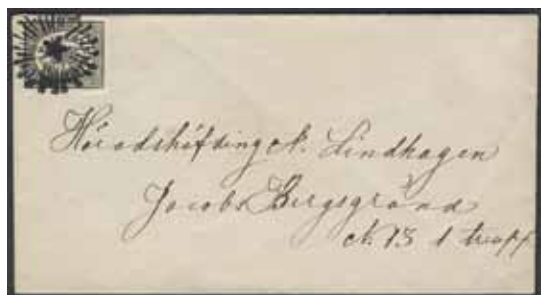 Häradshöfding A. Lindhagen
Jacobs Bergsgränd
N. 13 1 trapp.